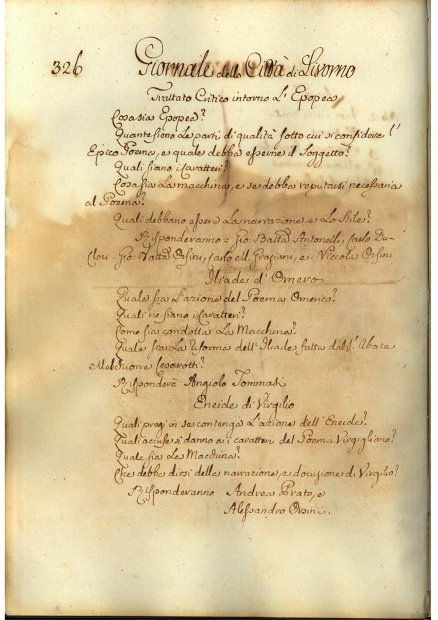 326 Giornale della Città di Livorno
Trattato Critico intorno L'Epopea
Cosa sia Epopea?
Quante siano Le parti di qualità sotto cui si considera l'
Epico Poema, e quale debba esserne il Soggetto?
Quali siano i Caratteri?
Cosa sia La machina, e se debba reputarsi necessaria
al Poema?
Quali debbano essere La narrazione, e Lo Stile?
Risponderanno Gio: Batta Antonelli, Carlo Du-
Clou, Gio: Batta Orsini, Carlo M. Graziani, e Niccola Orsini.
Iliade d'Omero
Quale sia l'azione del Poema Omerico?
Quali vi siano i Caratteri?
Come sia condotta La Macchina?
Quale sia La riforma dell'Iliade fatta dall'Abate
Melchiorre Cesarotti?
Risponderà Angiolo Tommasi
Eneide di Virgilio
Quali pregi in se contenga L'azione dell'Eneide?
Quali accuse si danno a i caratteri del Poema Virgigliano?
Quale sia La Machina?
Che debba dirsi della narrazione, e di Virgilio?
Risponderanno Andrea Prato, e
Alessandro Orsini.